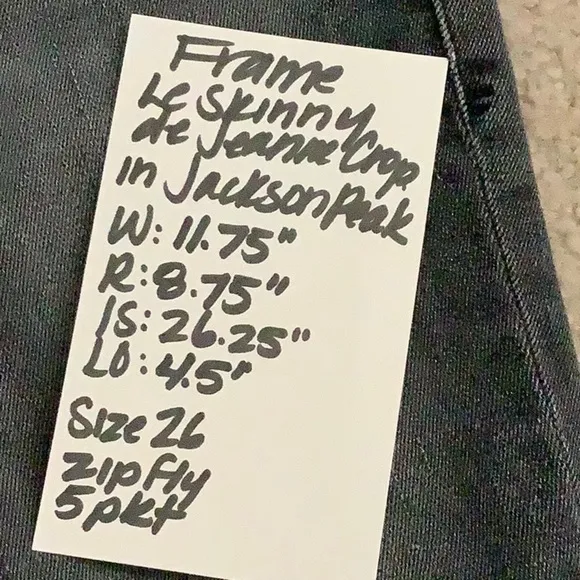 Frame
Le Skinny
de Jeanne Crop
in Jackson Peak
W: 11.75"
R: 8.75"
IS: 26.25"
LO: 4.5"
Size 26
Zip fly
5 pkt